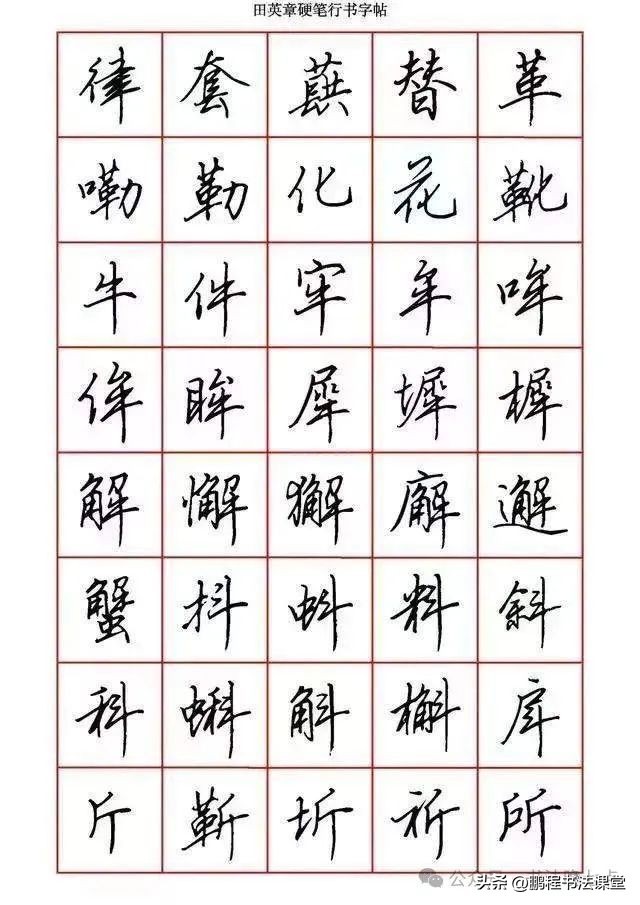 田英章硬笔行书字帖
律 套 蕻 替 革
嘞 勒 化 花 靴
牛 件 牢 牟 哞
侔 眸 犀 墀 樨
解 懈 獬 廨 邂
蟹 抖 蚪 料 斜
科 蝌 斛 槲 戽
斤 靳 圻 祈 所
头条 @鹏程书法课堂